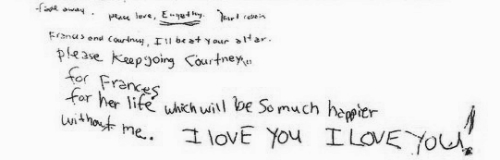 fade away. peace love, Empathy. Kurt Cobain
Frances and Courtney, I'll be at your altar.
please keep going Courtney,
for Frances
for her life which will be so much happier
without me. I LOVE YOU I LOVE YOU!